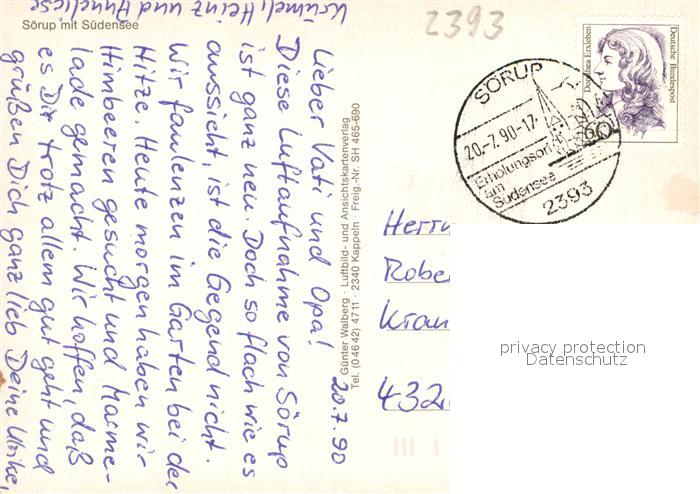 Sörup mit Südensee
2393
20.7.90
Lieber Vati und Opa!
Diese Luftaufnahme von Sörup
ist ganz neu. Doch so flach wie es
aussieht, ist die Gegend nicht.
Wir faulenzen im Garten bei der
Hitze. Heute morgen haben wir
Himbeeren gesucht und Marme-
lade gemacht. Wir hoffen, daß
es Dir trotz allem gut geht und
grüßen Dich ganz lieb Deine Ulrike,
Krümel, Heinz und Anneliese
Günter Walberg · Luftbild- und Ansichtskartenverlag
Tel. (04642) 4711 · 2340 Kappeln · Freig.-Nr. SH 465-690
SÖRUP
20.-7.90-17
Erholungsort
am
Südensee
2393
Dorothea Erxleben
Deutsche Bundespost
60
Herrn
Robe
Kran
432
privacy protection
Datenschutz